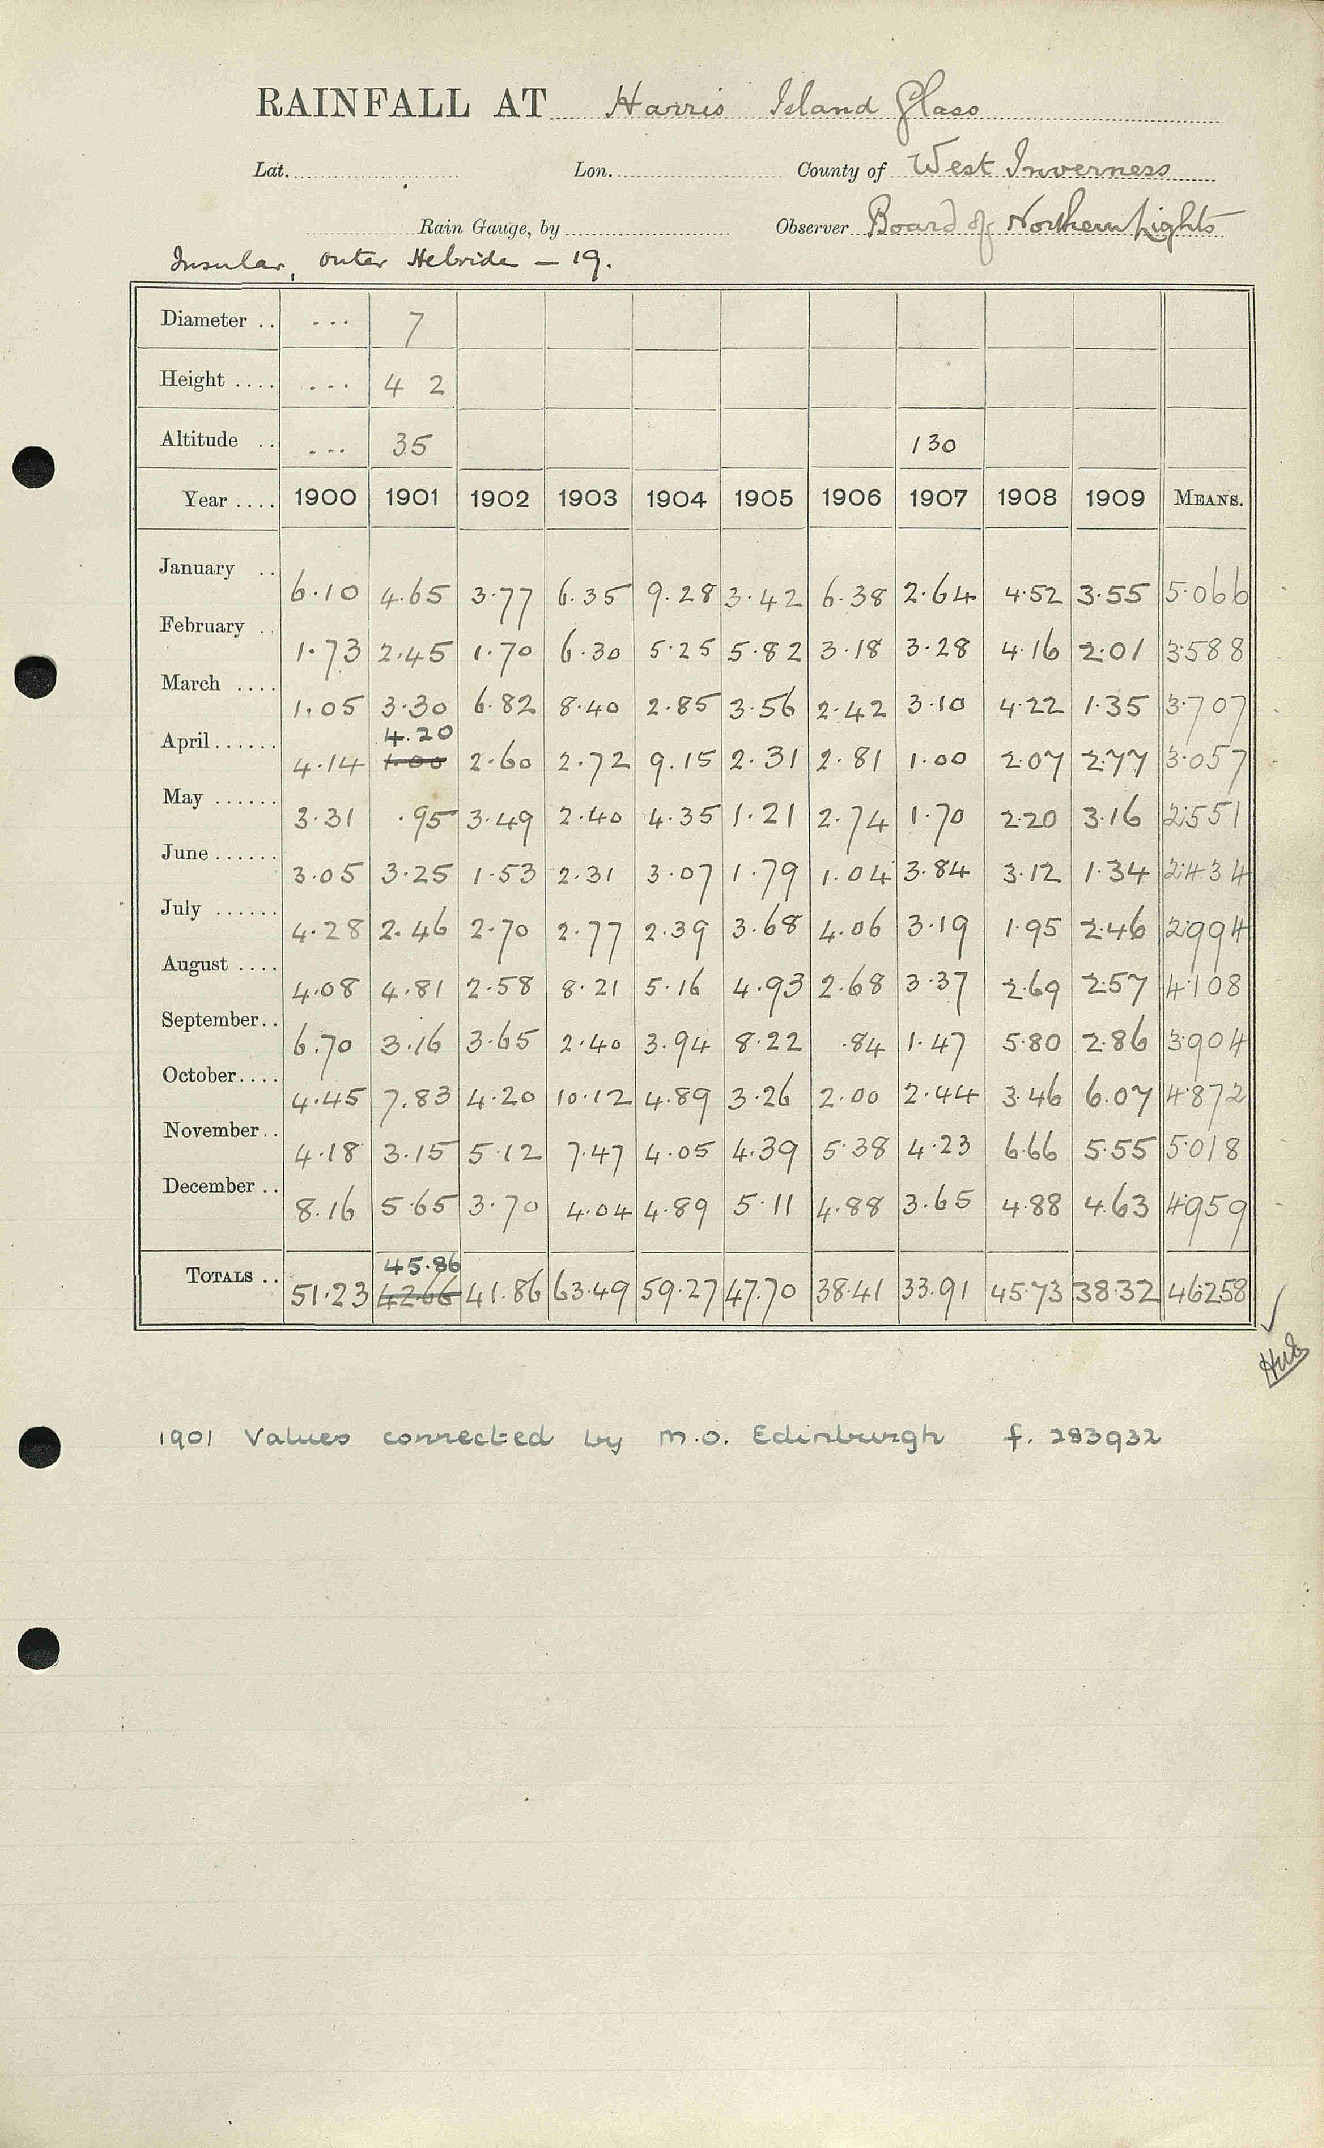 RAINFALL AT Harris Island Glass
Lat. Lon. County of West Inverness
Rain Gauge, by Observer Board of Northern Lights
Insular, outer Hebride – 19.
Diameter .. ... 7
Height .... ... 4 2
Altitude .. ... 35 130
Year .... 1900 1901 1902 1903 1904 1905 1906 1907 1908 1909 MEANS.
January .. 6.10 4.65 3.77 6.35 9.28 3.42 6.38 2.64 4.52 3.55 5.066
February .. 1.73 2.45 1.70 6.30 5.25 5.82 3.18 3.28 4.16 2.01 3.588
March .... 1.05 3.30 6.82 8.40 2.85 3.56 2.42 3.10 4.22 1.35 3.707
4.20
April ...... 4.14 1.00 2.60 2.72 9.15 2.31 2.81 1.00 2.07 2.77 3.057
May ...... 3.31 .95 3.49 2.40 4.35 1.21 2.74 1.70 2.20 3.16 2.551
June ...... 3.05 3.25 1.53 2.31 3.07 1.79 1.04 3.84 3.12 1.34 2.434
July ...... 4.28 2.46 2.70 2.77 2.39 3.68 4.06 3.19 1.95 2.46 2.994
August .... 4.08 4.81 2.58 8.21 5.16 4.93 2.68 3.37 2.69 2.57 4.108
September .. 6.70 3.16 3.65 2.40 3.94 8.22 .84 1.47 5.80 2.86 3.904
October .... 4.45 7.83 4.20 10.12 4.89 3.26 2.00 2.44 3.46 6.07 4.872
November .. 4.18 3.15 5.12 7.47 4.05 4.39 5.38 4.23 6.66 5.55 5.018
December .. 8.16 5.65 3.70 4.04 4.89 5.11 4.88 3.65 4.88 4.63 4.959
45.86
TOTALS .. 51.23 42.66 41.86 63.49 59.27 47.70 38.41 33.91 45.73 38.32 46.258
1901 Values corrected by M.O. Edinburgh f. 283932